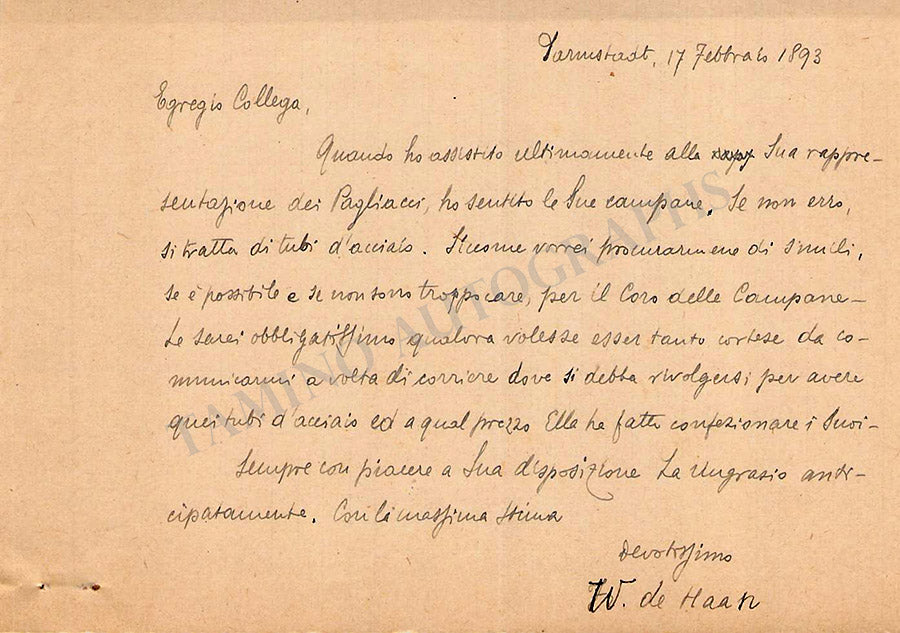 Darmstadt, 17 Febbraio 1893
Egregio Collega,
Quando ho assistito ultimamente alla Sua rappre-
sentazione dei Pagliacci, ho sentito le Sue campane. Se non erro,
si tratta di tubi d'acciaio. Siccome vorrei procurarmene di simili,
se è possibile e se non sono troppo care, per il Coro delle Campane –
Le sarei obbligatissimo qualora volesse esser tanto cortese da co-
municarmi a volta di corriere dove si debba rivolgersi per avere
quei tubi d'acciaio ed a qual prezzo Ella ha fatto confezionare i Suoi –
Sempre con piacere a Sua disposizione La ringrazio anti-
cipatamente. Con la massima stima
Devotissimo
W. de Haan
TAMINO AUTOGRAPHS